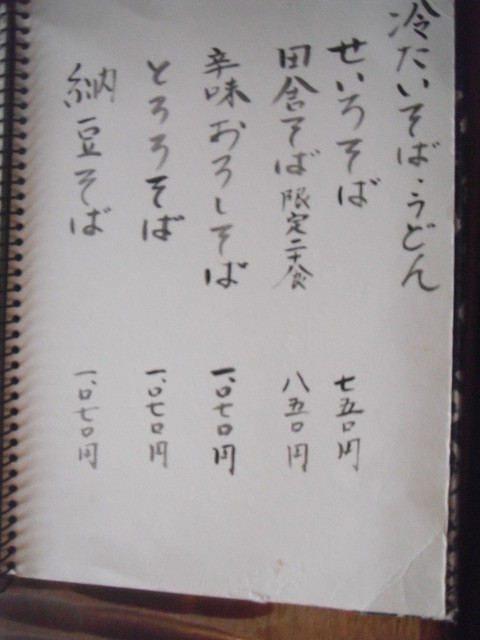 冷たいそば・うどん
せいろそば 七五〇円
田舎そば 限定二十食 八五〇円
辛味おろしそば 一、〇七〇円
とろろそば 一、〇七〇円
納豆そば 一、〇七〇円